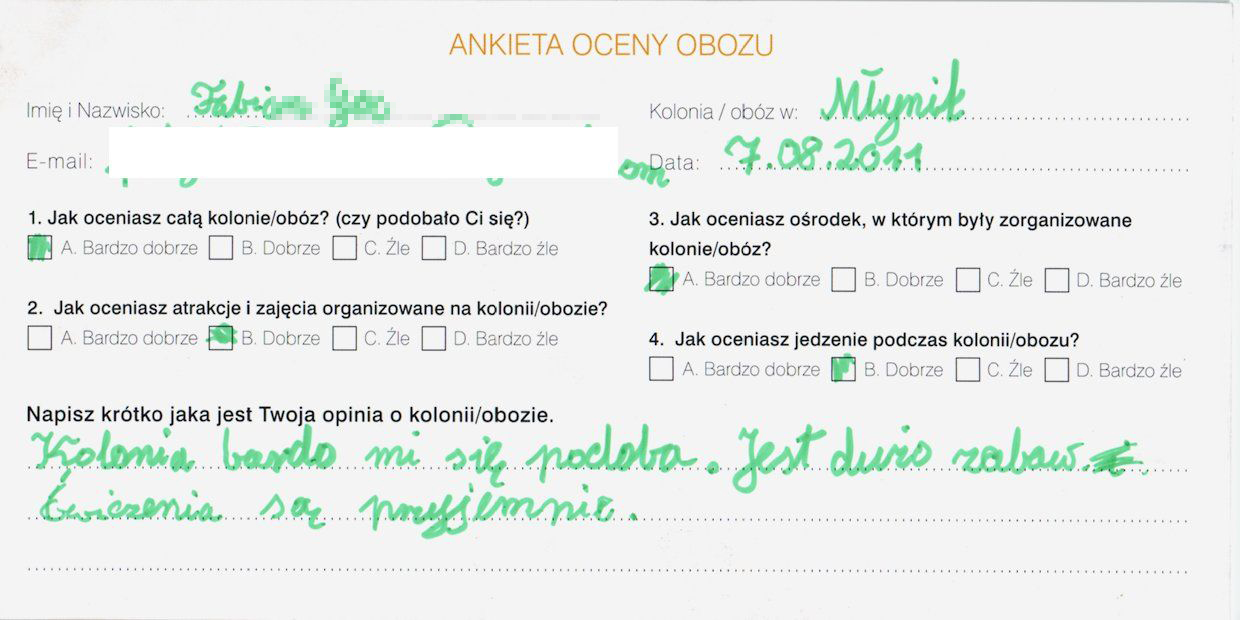 ANKIETA OCENY OBOZU
Imię i Nazwisko: Fabian
Kolonia / obóz w: Młynik
E-mail: om
Data: 7.08.2011
1. Jak oceniasz całą kolonie/obóz? (czy podobało Ci się?)
A. Bardzo dobrze B. Dobrze C. Źle D. Bardzo źle
2. Jak oceniasz atrakcje i zajęcia organizowane na kolonii/obozie?
A. Bardzo dobrze B. Dobrze C. Źle D. Bardzo źle
3. Jak oceniasz ośrodek, w którym były zorganizowane
kolonie/obóz?
A. Bardzo dobrze B. Dobrze C. Źle D. Bardzo źle
4. Jak oceniasz jedzenie podczas kolonii/obozu?
A. Bardzo dobrze B. Dobrze C. Źle D. Bardzo źle
Napisz krótko jaka jest Twoja opinia o kolonii/obozie.
Kolonia bardo mi się podoba. Jest dużo zabaw.
Ćwiczenia są przyjemnie.